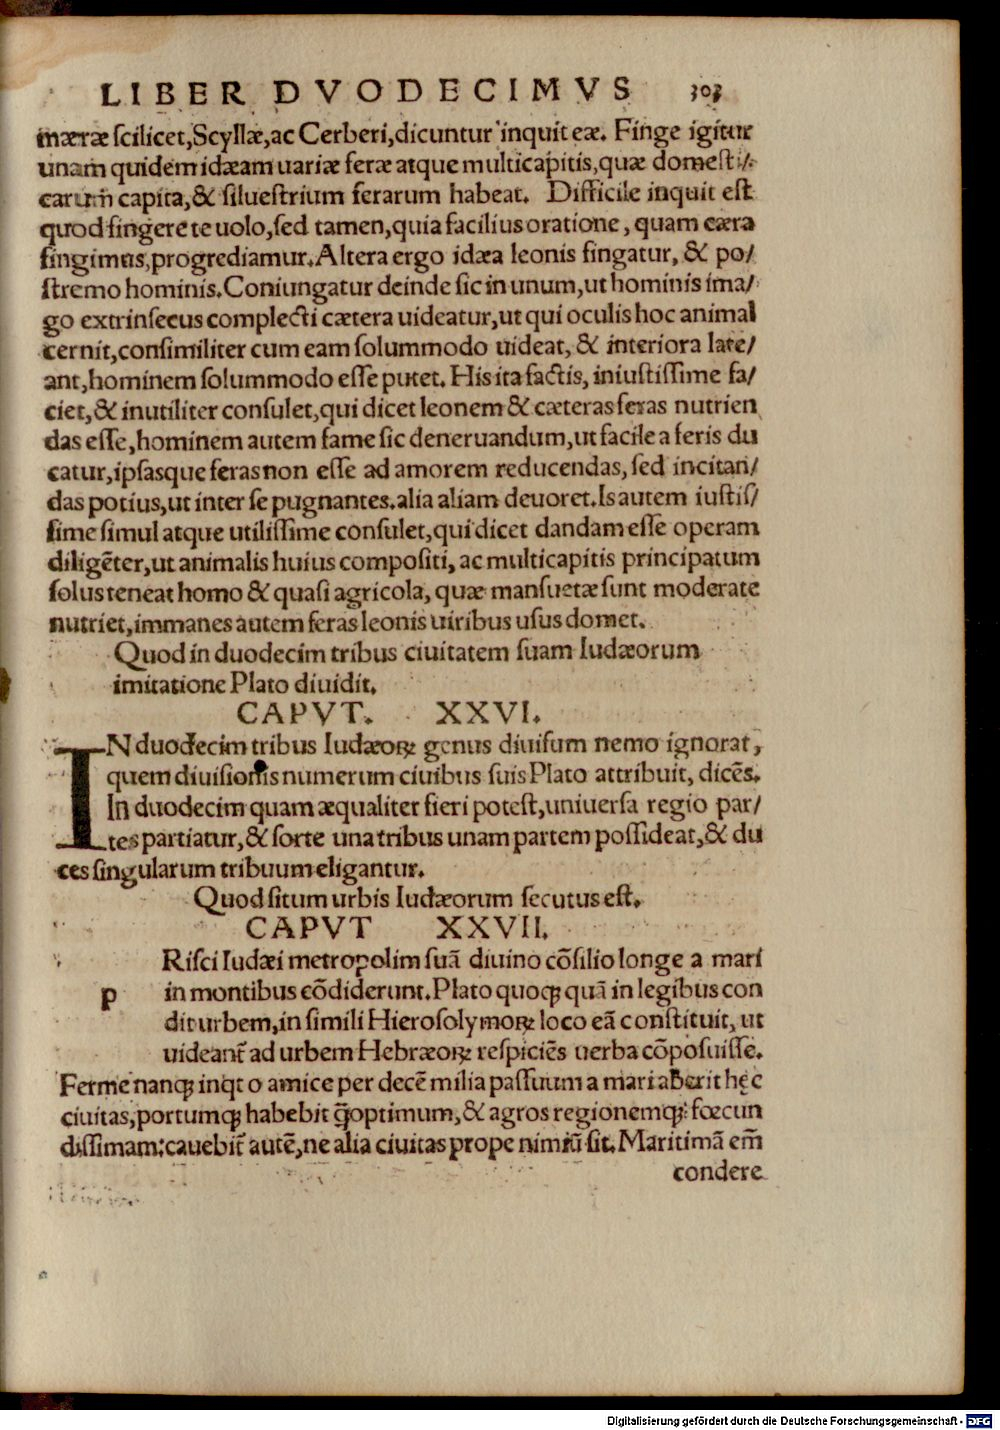 LIBER DVODECIMVS 303
mæræ scilicet,Scyllæ,ac Cerberi,dicuntur inquit eæ. Finge igitur
unam quidem idæam uariæ feræ atque multicapitis,quæ domesti/
carum capita,& siluestrium ferarum habeat. Difficile inquit est
quod fingere te uolo,sed tamen,quia facilius oratione, quam cæra
fingimus,progrediamur.Altera ergo idæa leonis fingatur, & po/
stremo hominis.Coniungatur deinde sic in unum,ut hominis ima/
go extrinsecus complecti cætera uideatur,ut qui oculis hoc animal
cernit,consimiliter cum eam solummodo uideat, & interiora late/
ant,hominem solummodo esse putet. His ita factis, iniustissime fa/
ciet,& inutiliter consulet,qui dicet leonem & cæteras feras nutrien
das esse,hominem autem fame sic deneruandum,ut facile a feris du
catur,ipsasque feras non esse ad amorem reducendas, sed incitan/
das potius,ut inter se pugnantes.alia aliam deuoret.Is autem iustis/
sime simul atque utilissime consulet,qui dicet dandam esse operam
diligēter,ut animalis huius compositi, ac multicapitis principatum
solus teneat homo & quasi agricola, quæ mansuetæ sunt moderate
nutriet,immanes autem feras leonis uiribus usus domet.
Quod in duodecim tribus ciuitatem suam Iudæorum
imitatione Plato diuidit.
CAPVT. XXVI.
IN duodecim tribus Iudæoꝝ genus diuisum nemo ignorat,
quem diuisionis numerum ciuibus suis Plato attribuit, dicēs.
In duodecim quam æqualiter fieri potest,uniuersa regio par/
tes partiatur,& sorte una tribus unam partem possideat,& du
ces singularum tribuum eligantur.
Quod situm urbis Iudæorum secutus est.
CAPVT XXVII.
p Risci Iudæi metropolim suā diuino cōsilio longe a mari
in montibus cōdiderunt.Plato quoqꝫ quā in legibus con
dit urbem,in simili Hierosolymoꝝ loco eā constituit, ut
uideant̄ ad urbem Hebræoꝝ respiciēs uerba cōposuisse.
Ferme nanqꝫ inqt o amice per decē milia passuum a mari aberit hęc
ciuitas,portumqꝫ habebit q̄optimum,& agros regionemqꝫ fœcun
dissimam:cauebit̄ autē,ne alia ciuitas prope nimiū sit. Maritimā em̄
condere
Digitalisierung gefördert durch die Deutsche Forschungsgemeinschaft - DFG